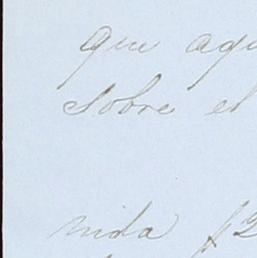 que aqu
sobre el
nida $2